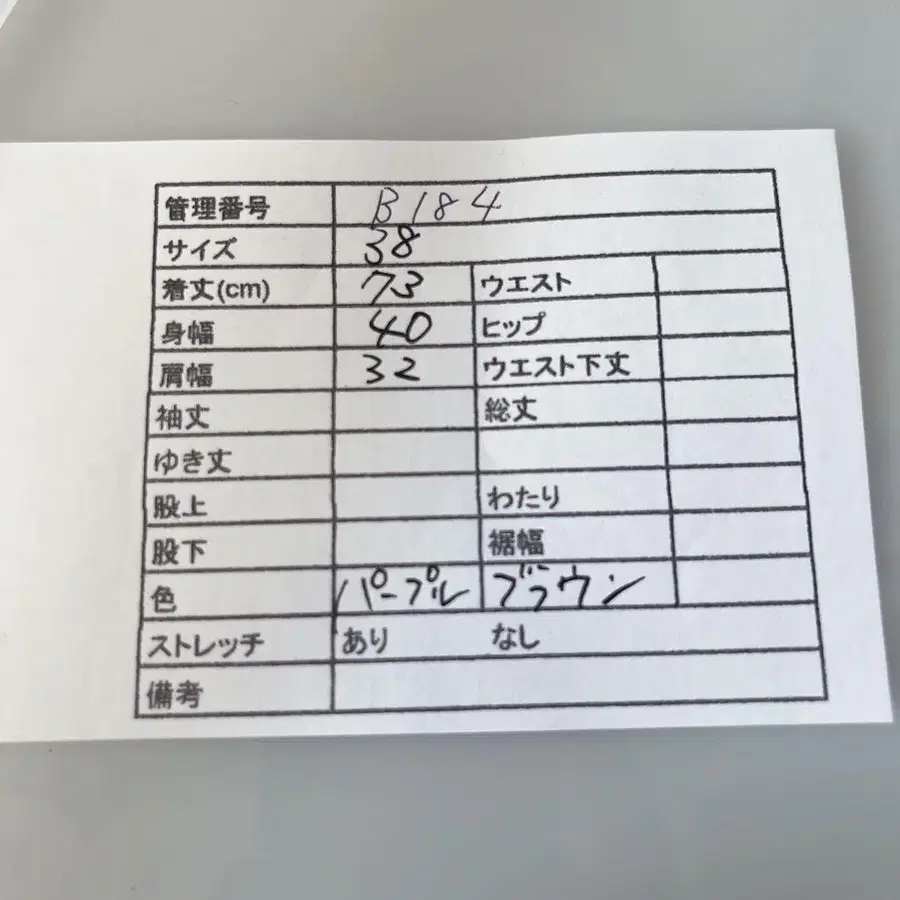 管理番号 B184
サイズ 38
着丈(cm) 73 ウエスト
身幅 40 ヒップ
肩幅 32 ウエスト下丈
袖丈 総丈
ゆき丈
股上 わたり
股下 裾幅
色 パープル ブラウン
ストレッチ あり なし
備考